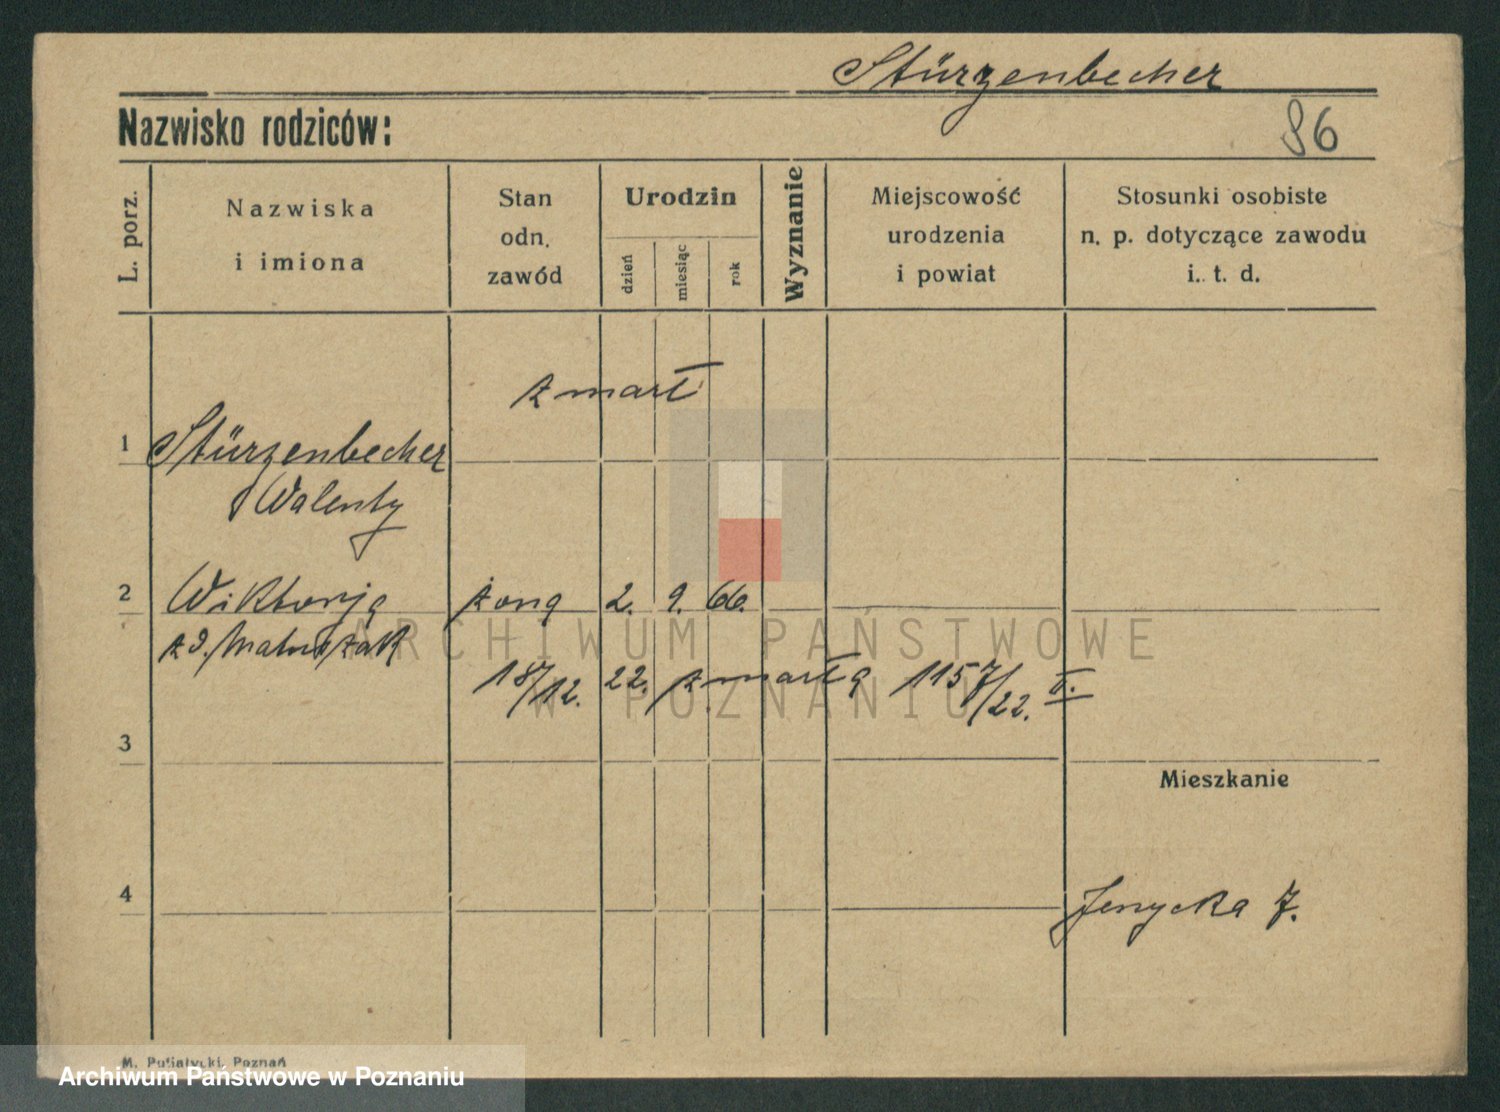 Stürzenbecher
Nazwisko rodziców:
86
L. porz.
Nazwiska
i imiona
Stan
odn.
zawód
Urodzin
dzień
miesiąc
rok
Wyznanie
Miejscowość
urodzenia
i powiat
Stosunki osobiste
n. p. dotyczące zawodu
i. t. d.
zmarł
1 Stürzenbecher
Walenty
2 Wiktorja żona 2. 9. 66.
z d. Matuszak
18/12. 22. zmarła 1157/22. V.
3
Mieszkanie
4
Jeżycka 7.
ARCHIWUM PAŃSTWOWE
W POZNANIU
M. Putiatycki, Poznań
Archiwum Państwowe w Poznaniu